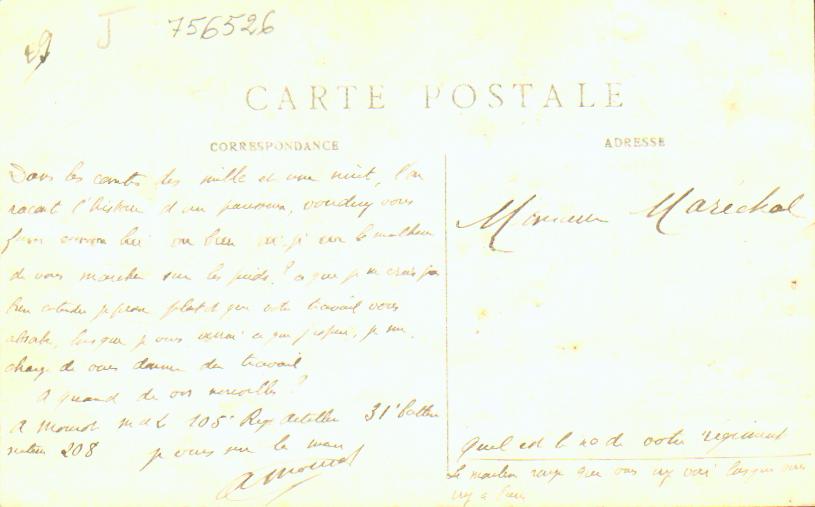 J 756526
CARTE POSTALE
CORRESPONDANCE
ADRESSE
Dans les contes des mille et une nuit, l'on
racont l'histoire d'un
comme lui ou bien ai-je eu le malheur
de vous marcher sur les pieds? ce que je ne crois pas
bien entendu je pense plutot que votre travail vous
absorbe, lorsque je vous verrai ce que j'espère, je me
charge de vous donner du travail
A quand de vos nouvelles?
A Mourot m d L 105e Reg 31e
secteur 208 je vous serre la main
AMourot
Monsieur Maréchal
quel est le no de votre régiment
Le rouge que vous